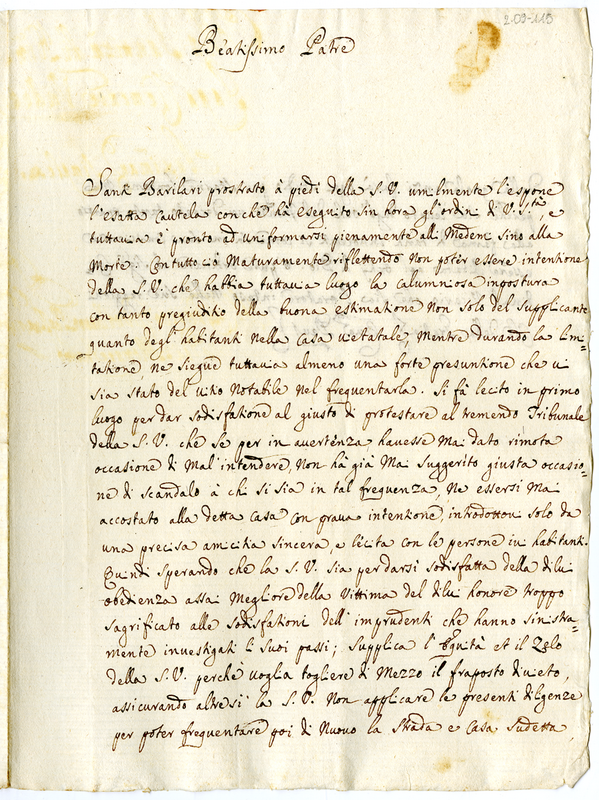 2-09-115
Beatissimo Patre
Sante Barilari prostrato à piedi della S. V. umilmente l'espone
l'esatta Cautela con che hà eseguito sin hora gl'ordin di V. S.tà, e
tuttauia è pronto ad uniformarsi pienamente alli Medemi sino alla
Morte. Con tutto ciò Maturamente riflettendo non potèr essere intentione
della S. V. che habbia tuttauia luogo la calumniosa impostura
con tanto pregiuditio della buona estimatione Non solo del supplicante
quanto degl'habitanti nella casa uietatale, Mentre durando la limi=
tatione ne siegue tuttauia almeno una forte presuntione che ui
sia stato del uitio Notabile nel frequentarla. Si fà lecito in primo
luogo per dar sodisfatione al giusto di protestare al tremendo Tribunale
della S. V. che sè per in auertenza hauesse Mai dato rimota
occasione di Mal'intendere, Non hà già Mai suggerito giusta occasio=
ne di scandalo à chi si sia in tal frequenza, Ne essersi Mai
accostato alla detta Casa con praua intentione, introdottoui solo da
una precisa amicitia sincera, e lècita con le persone iui habitanti.
Quindi sperando che la S. V. sia per darsi sodisfatta della di lui
obedienza assai Megliore della Vittima del di lui honore troppo
sagrificato alle sodisfationi dell'imprudenti che hanno sinistra=
mente inuestigati li suoi passi; supplica l'Equità et il Zelo
della S. V. perchè uoglia togliere di Mezzo il fraposto diuieto,
assicurando altresi la S. V. Non applicare le presenti diligenze
per poter frequentare poi di Nuovo la strada e Casa sudetta,